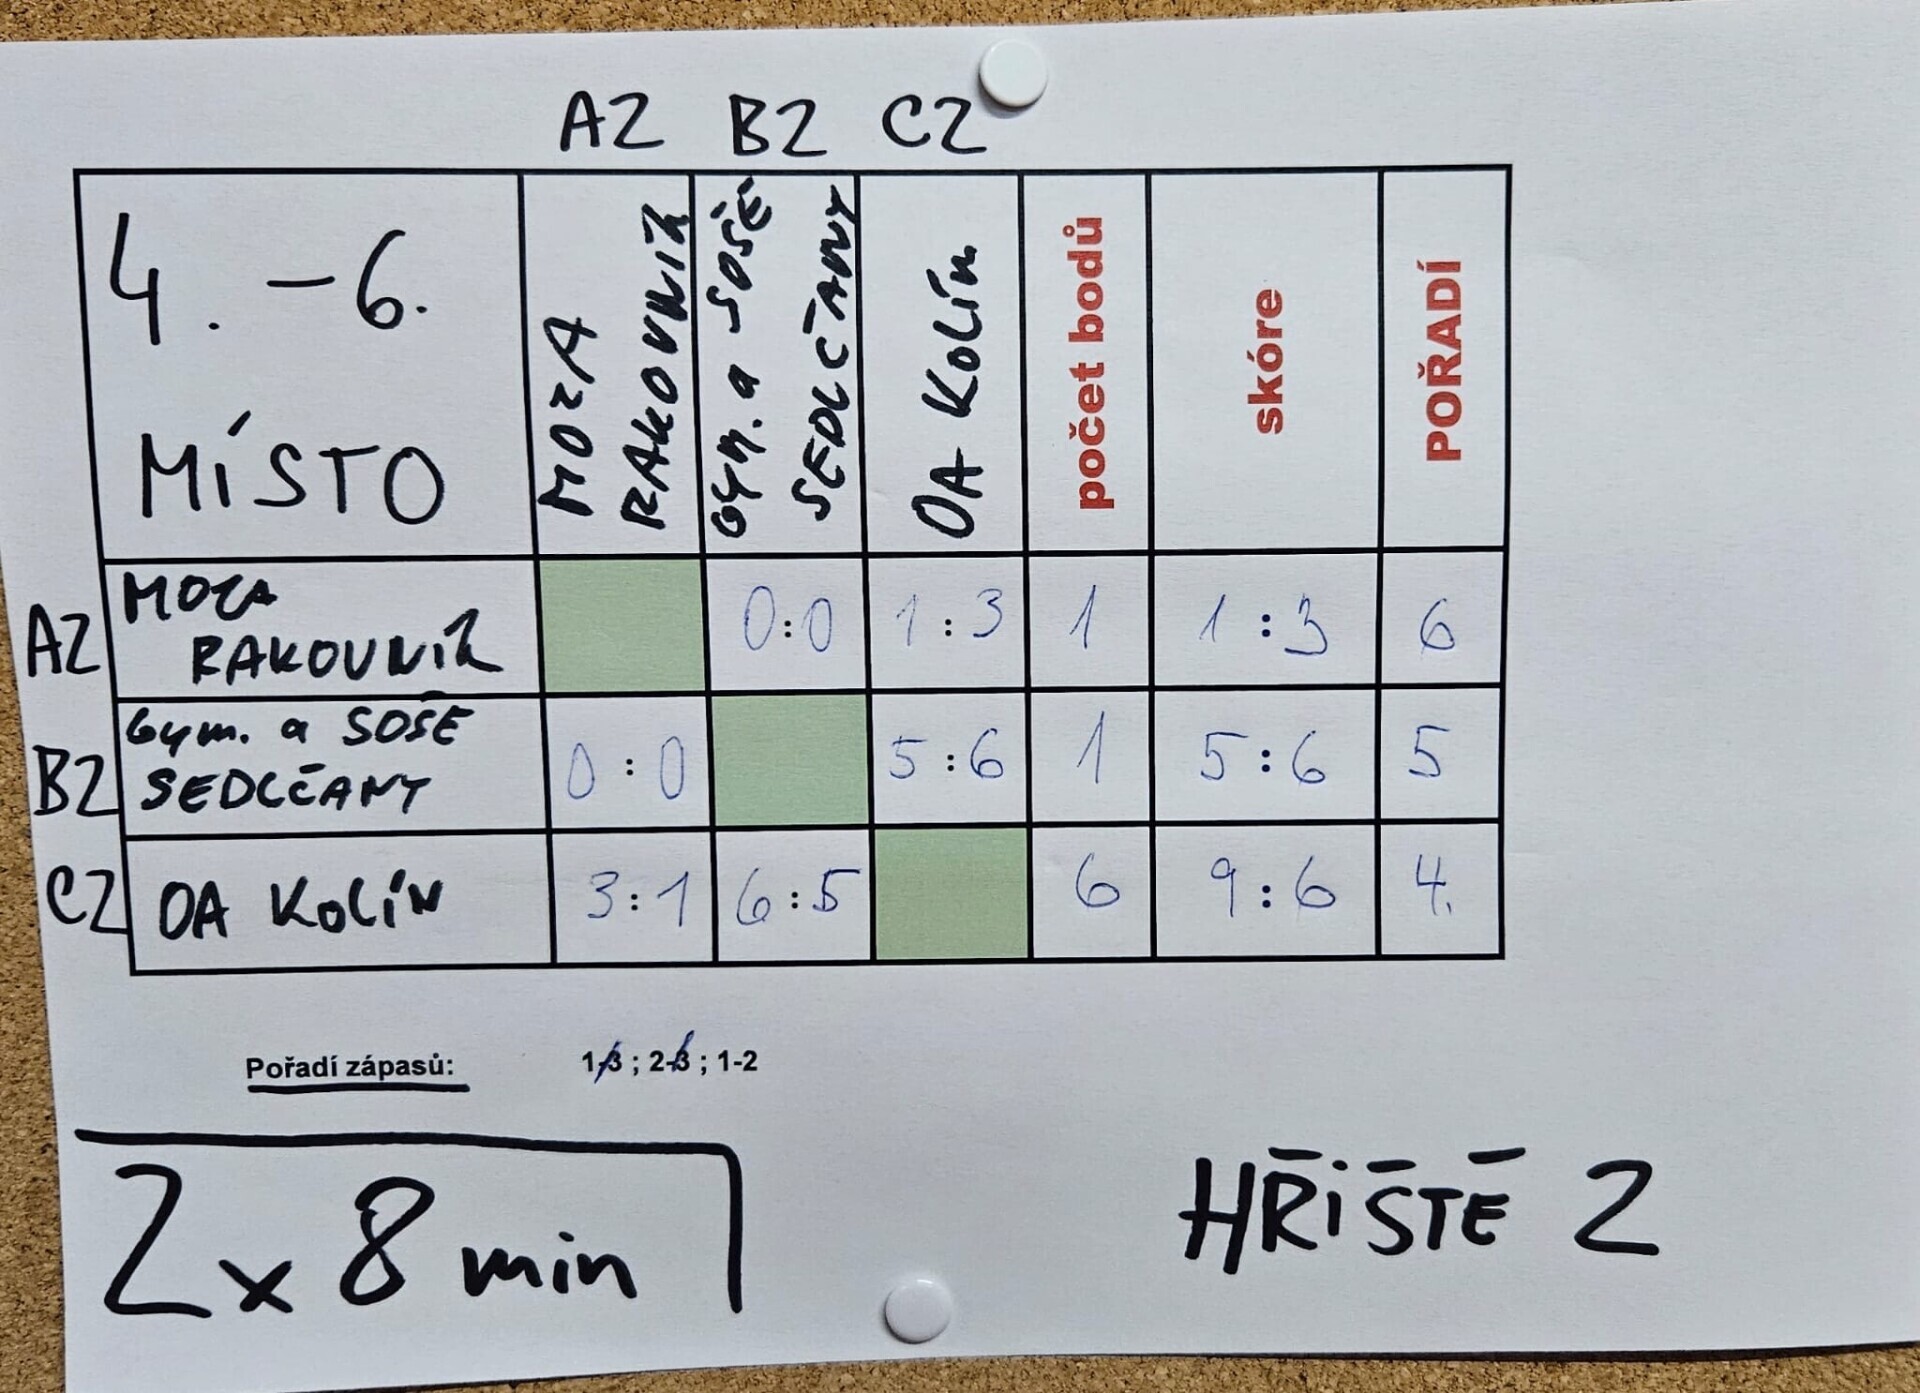 A2 B2 C2
4. - 6.
MÍSTO
MOZA
RAKOVNÍK
Gym. a SOŠE
SEDLČANY
OA KOLÍN
počet bodů
skóre
POŘADÍ
A2 MOZA
RAKOVNÍK 0:0 1:3 1 1:3 6
B2 Gym. a SOŠE
SEDLČANY 0:0 5:6 1 5:6 5
C2 OA KOLÍN 3:1 6:5 6 9:6 4.
Pořadí zápasů: 1-3 ; 2-3 ; 1-2
2 x 8 min
HŘIŠTĚ 2